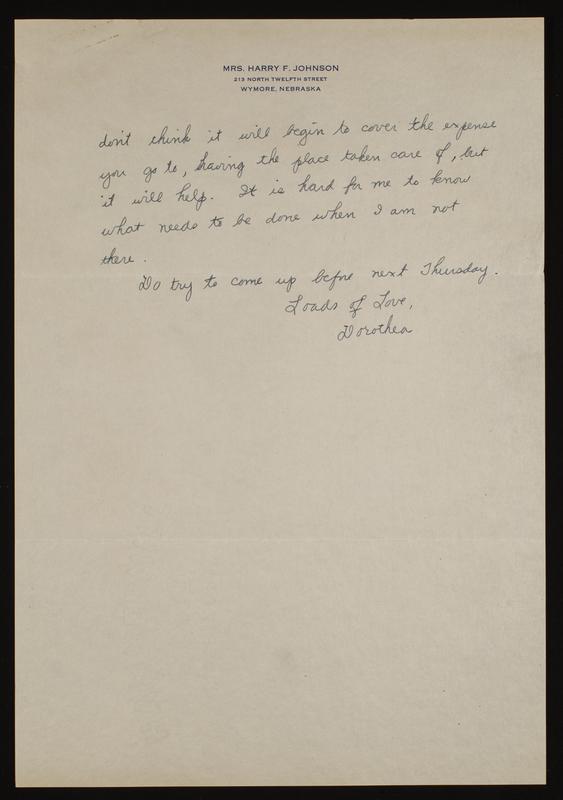 MRS. HARRY F. JOHNSON
213 NORTH TWELFTH STREET
WYMORE, NEBRASKA
don't think it will begin to cover the expense
you go to, having the place taken care of, but
it will help. It is hard for me to know
what needs to be done when I am not
there.
Do try to come up before next Thursday.
Loads of Love,
Dorothea